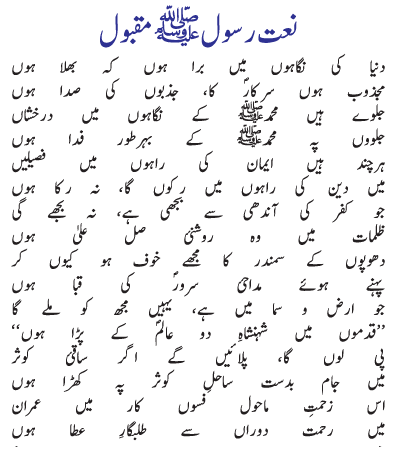 نعت رسول ﷺ مقبول
دنیا کی نگاہوں میں برا ہوں کہ بھلا ہوں
مجذوب ہوں سرکارؐ کا، جذبوں کی صدا ہوں
جلوے ہیں محمد ﷺ کے نگاہوں میں درخشاں
جلووں پہ محمد ﷺ کے بہرطور فدا ہوں
ہرچند ہیں ایمان کی راہوں میں فصیلیں
میں دین کی راہوں میں رکوں گا، نہ رکا ہوں
جو کفر کی آندھی سے بجھی ہے، نہ بجھے گی
ظلمات میں وہ روشنیٔ صل علیٰ ہوں
دھوپوں کے سمندر کا مجھے خوف ہو کیوں کر
پہنے ہوئے مداحیٔ سرورؐ کی قبا ہوں
جو ارض و سما میں ہے، یہیں مجھ کو ملے گا
’’قدموں میں شہنشاہِ دو عالمؐ کے پڑا ہوں‘‘
پی لوں گا، پلائیں گے اگر ساقیٔ کوثر
میں جام بدست ساحلِ کوثر پہ کھڑا ہوں
اس زحمتِ ماحول فسوں کار میں عمران
میں رحمت دوراں سے طلبگارِ عطا ہوں